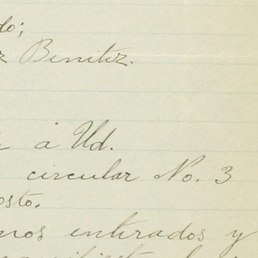 do;
z Benitez.
á Ud.
circular No. 3
osto.
mos enterados y